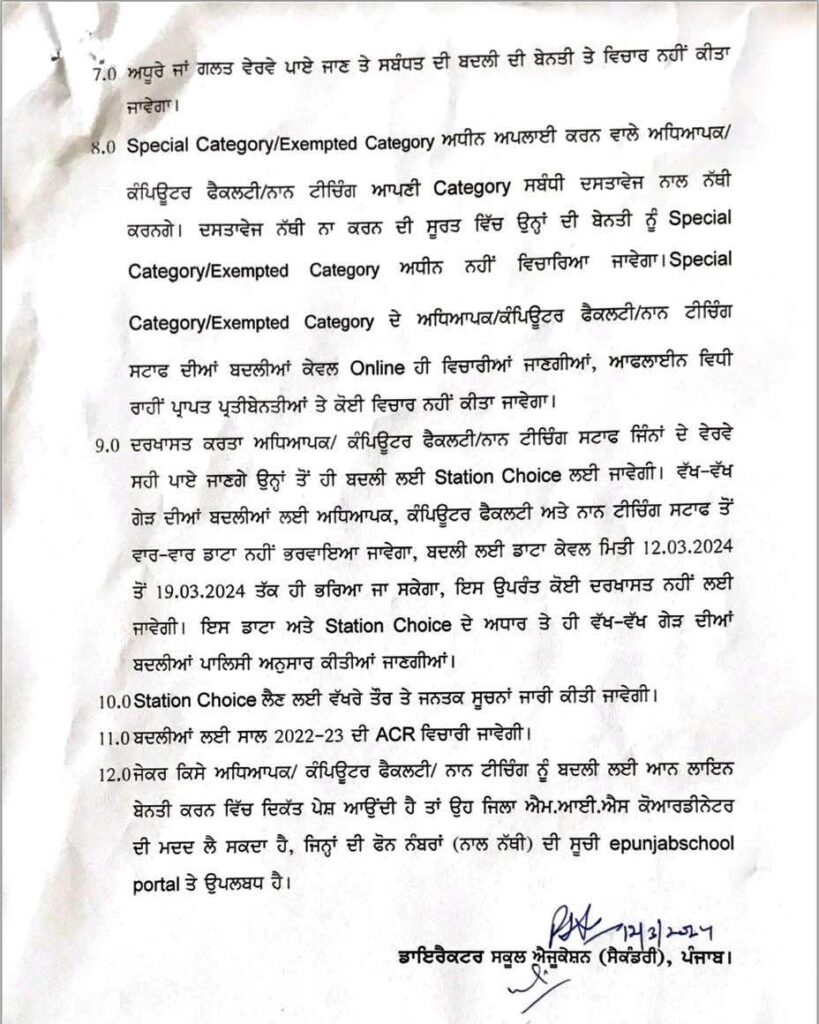 7.0 ਅਧੂਰੇ ਜਾਂ ਗਲਤ ਵੇਰਵੇ ਪਾਏ ਜਾਣ ਤੇ ਸਬੰਧਤ ਦੀ ਬਦਲੀ ਦੀ ਬੇਨਤੀ ਤੇ ਵਿਚਾਰ ਨਹੀਂ ਕੀਤਾ
ਜਾਵੇਗਾ।
8.0 Special Category/Exempted Category ਅਧੀਨ ਅਪਲਾਈ ਕਰਨ ਵਾਲੇ ਅਧਿਆਪਕ/
ਕੰਪਿਊਟਰ ਫੈਕਲਟੀ/ਨਾਨ ਟੀਚਿੰਗ ਆਪਣੀ Category ਸਬੰਧੀ ਦਸਤਾਵੇਜ ਨਾਲ ਨੱਥੀ
ਕਰਨਗੇ। ਦਸਤਾਵੇਜ ਨੱਥੀ ਨਾ ਕਰਨ ਦੀ ਸੂਰਤ ਵਿੱਚ ਉਨ੍ਹਾਂ ਦੀ ਬੇਨਤੀ ਨੂੰ Special
Category/Exempted Category ਅਧੀਨ ਨਹੀਂ ਵਿਚਾਰਿਆ ਜਾਵੇਗਾ।Special
Category/Exempted Category ਦੇ ਅਧਿਆਪਕ/ਕੰਪਿਊਟਰ ਫੈਕਲਟੀ/ਨਾਨ ਟੀਚਿੰਗ
ਸਟਾਫ ਦੀਆਂ ਬਦਲੀਆਂ ਕੇਵਲ Online ਹੀ ਵਿਚਾਰੀਆਂ ਜਾਣਗੀਆਂ, ਆਫਲਾਈਨ ਵਿਧੀ
ਰਾਹੀਂ ਪ੍ਰਾਪਤ ਪ੍ਰਤੀਬੇਨਤੀਆਂ ਤੇ ਕੋਈ ਵਿਚਾਰ ਨਹੀਂ ਕੀਤਾ ਜਾਵੇਗਾ।
9.0 ਦਰਖਾਸਤ ਕਰਤਾ ਅਧਿਆਪਕ/ ਕੰਪਿਊਟਰ ਫੈਕਲਟੀ/ਨਾਨ ਟੀਚਿੰਗ ਸਟਾਫ ਜਿੰਨਾਂ ਦੇ ਵੇਰਵੇ
ਸਹੀ ਪਾਏ ਜਾਣਗੇ ਉਨ੍ਹਾਂ ਤੋਂ ਹੀ ਬਦਲੀ ਲਈ Station Choice ਲਈ ਜਾਵੇਗੀ। ਵੱਖ-ਵੱਖ
ਗੇੜ ਦੀਆਂ ਬਦਲੀਆਂ ਲਈ ਅਧਿਆਪਕ, ਕੰਪਿਊਟਰ ਫੈਕਲਟੀ ਅਤੇ ਨਾਨ ਟੀਚਿੰਗ ਸਟਾਫ ਤੋਂ
ਵਾਰ-ਵਾਰ ਡਾਟਾ ਨਹੀਂ ਭਰਵਾਇਆ ਜਾਵੇਗਾ, ਬਦਲੀ ਲਈ ਡਾਟਾ ਕੇਵਲ ਮਿਤੀ 12.03.2024
ਤੋਂ 19.03.2024 ਤੱਕ ਹੀ ਭਰਿਆ ਜਾ ਸਕੇਗਾ, ਇਸ ਉਪਰੰਤ ਕੋਈ ਦਰਖਾਸਤ ਨਹੀਂ ਲਈ
ਜਾਵੇਗੀ। ਇਸ ਡਾਟਾ ਅਤੇ Station Choice ਦੇ ਅਧਾਰ ਤੇ ਹੀ ਵੱਖ-ਵੱਖ ਗੇੜ ਦੀਆਂ
ਬਦਲੀਆਂ ਪਾਲਿਸੀ ਅਨੁਸਾਰ ਕੀਤੀਆਂ ਜਾਣਗੀਆਂ।
10.0 Station Choice ਲੈਣ ਲਈ ਵੱਖਰੇ ਤੌਰ ਤੇ ਜਨਤਕ ਸੂਚਨਾਂ ਜਾਰੀ ਕੀਤੀ ਜਾਵੇਗੀ।
11.0 ਬਦਲੀਆਂ ਲਈ ਸਾਲ 2022-23 ਦੀ ACR ਵਿਚਾਰੀ ਜਾਵੇਗੀ।
12.0 ਜੇਕਰ ਕਿਸੇ ਅਧਿਆਪਕ/ ਕੰਪਿਊਟਰ ਫੈਕਲਟੀ/ ਨਾਨ ਟੀਚਿੰਗ ਨੂੰ ਬਦਲੀ ਲਈ ਆਨ ਲਾਇਨ
ਬੇਨਤੀ ਕਰਨ ਵਿੱਚ ਦਿਕੱਤ ਪੇਸ਼ ਆਉਂਦੀ ਹੈ ਤਾਂ ਉਹ ਜਿਲਾ ਐਮ.ਆਈ.ਐਸ ਕੋਆਰਡੀਨੇਟਰ
ਦੀ ਮਦਦ ਲੈ ਸਕਦਾ ਹੈ, ਜਿਨ੍ਹਾਂ ਦੀ ਫੋਨ ਨੰਬਰਾਂ (ਨਾਲ ਨੱਥੀ) ਦੀ ਸੂਚੀ epunjabschool
portal ਤੇ ਉਪਲਬਧ ਹੈ।
12/3/2024
ਡਾਇਰੈਕਟਰ ਸਕੂਲ ਐਜੂਕੇਸ਼ਨ (ਸੈਕੰਡਰੀ), ਪੰਜਾਬ।